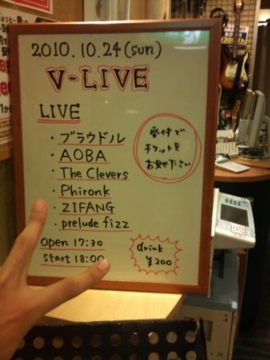 2010.10.24(sun)
V-LIVE
LIVE
・ブラウドル
・AOBA
・The Clevers
・Phironk
・ZIFANG
・prelude fizz
受付で
チケットを
お見せ下さい
open 17:30
start 18:00
drink
¥200